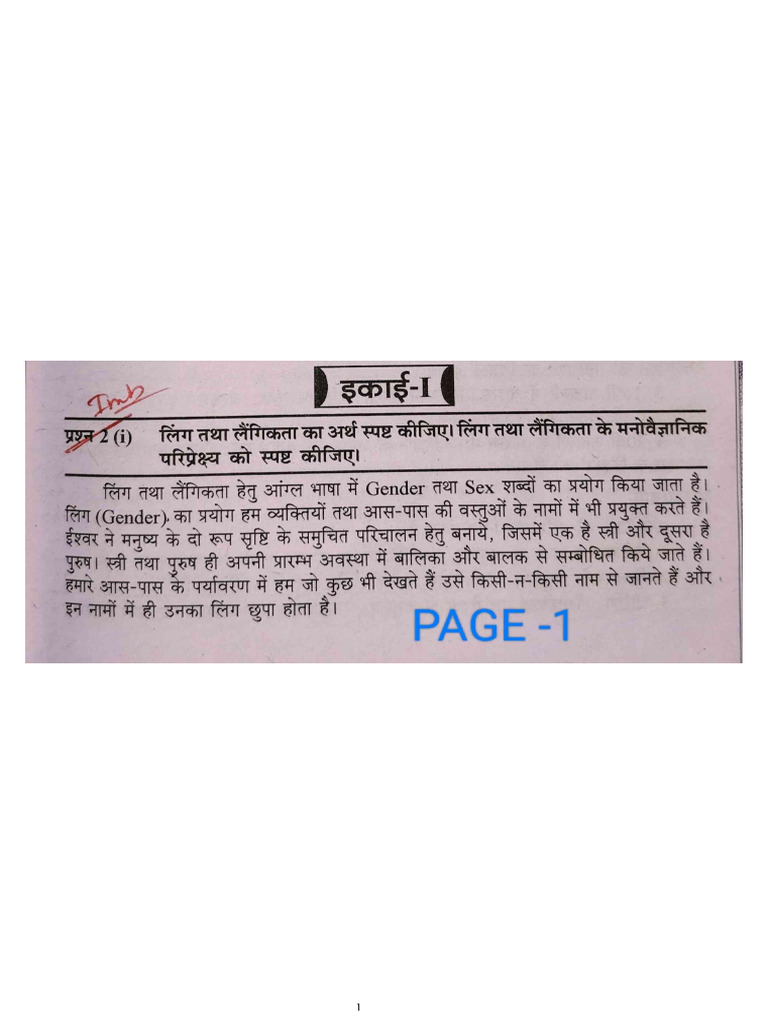 इकाई-I
Imp
प्रश्न 2 (i) लिंग तथा लैंगिकता का अर्थ स्पष्ट कीजिए। लिंग तथा लैंगिकता के मनोवैज्ञानिक
परिप्रेक्ष्य को स्पष्ट कीजिए।
लिंग तथा लैंगिकता हेतु आंग्ल भाषा में Gender तथा Sex शब्दों का प्रयोग किया जाता है।
लिंग (Gender) का प्रयोग हम व्यक्तियों तथा आस-पास की वस्तुओं के नामों में भी प्रयुक्त करते हैं।
ईश्वर ने मनुष्य के दो रूप सृष्टि के समुचित परिचालन हेतु बनाये, जिसमें एक है स्त्री और दूसरा है
पुरुष। स्त्री तथा पुरुष ही अपनी प्रारम्भ अवस्था में बालिका और बालक से सम्बोधित किये जाते हैं।
हमारे आस-पास के पर्यावरण में हम जो कुछ भी देखते हैं उसे किसी-न-किसी नाम से जानते हैं और
इन नामों में ही उनका लिंग छुपा होता है।
PAGE -1
1